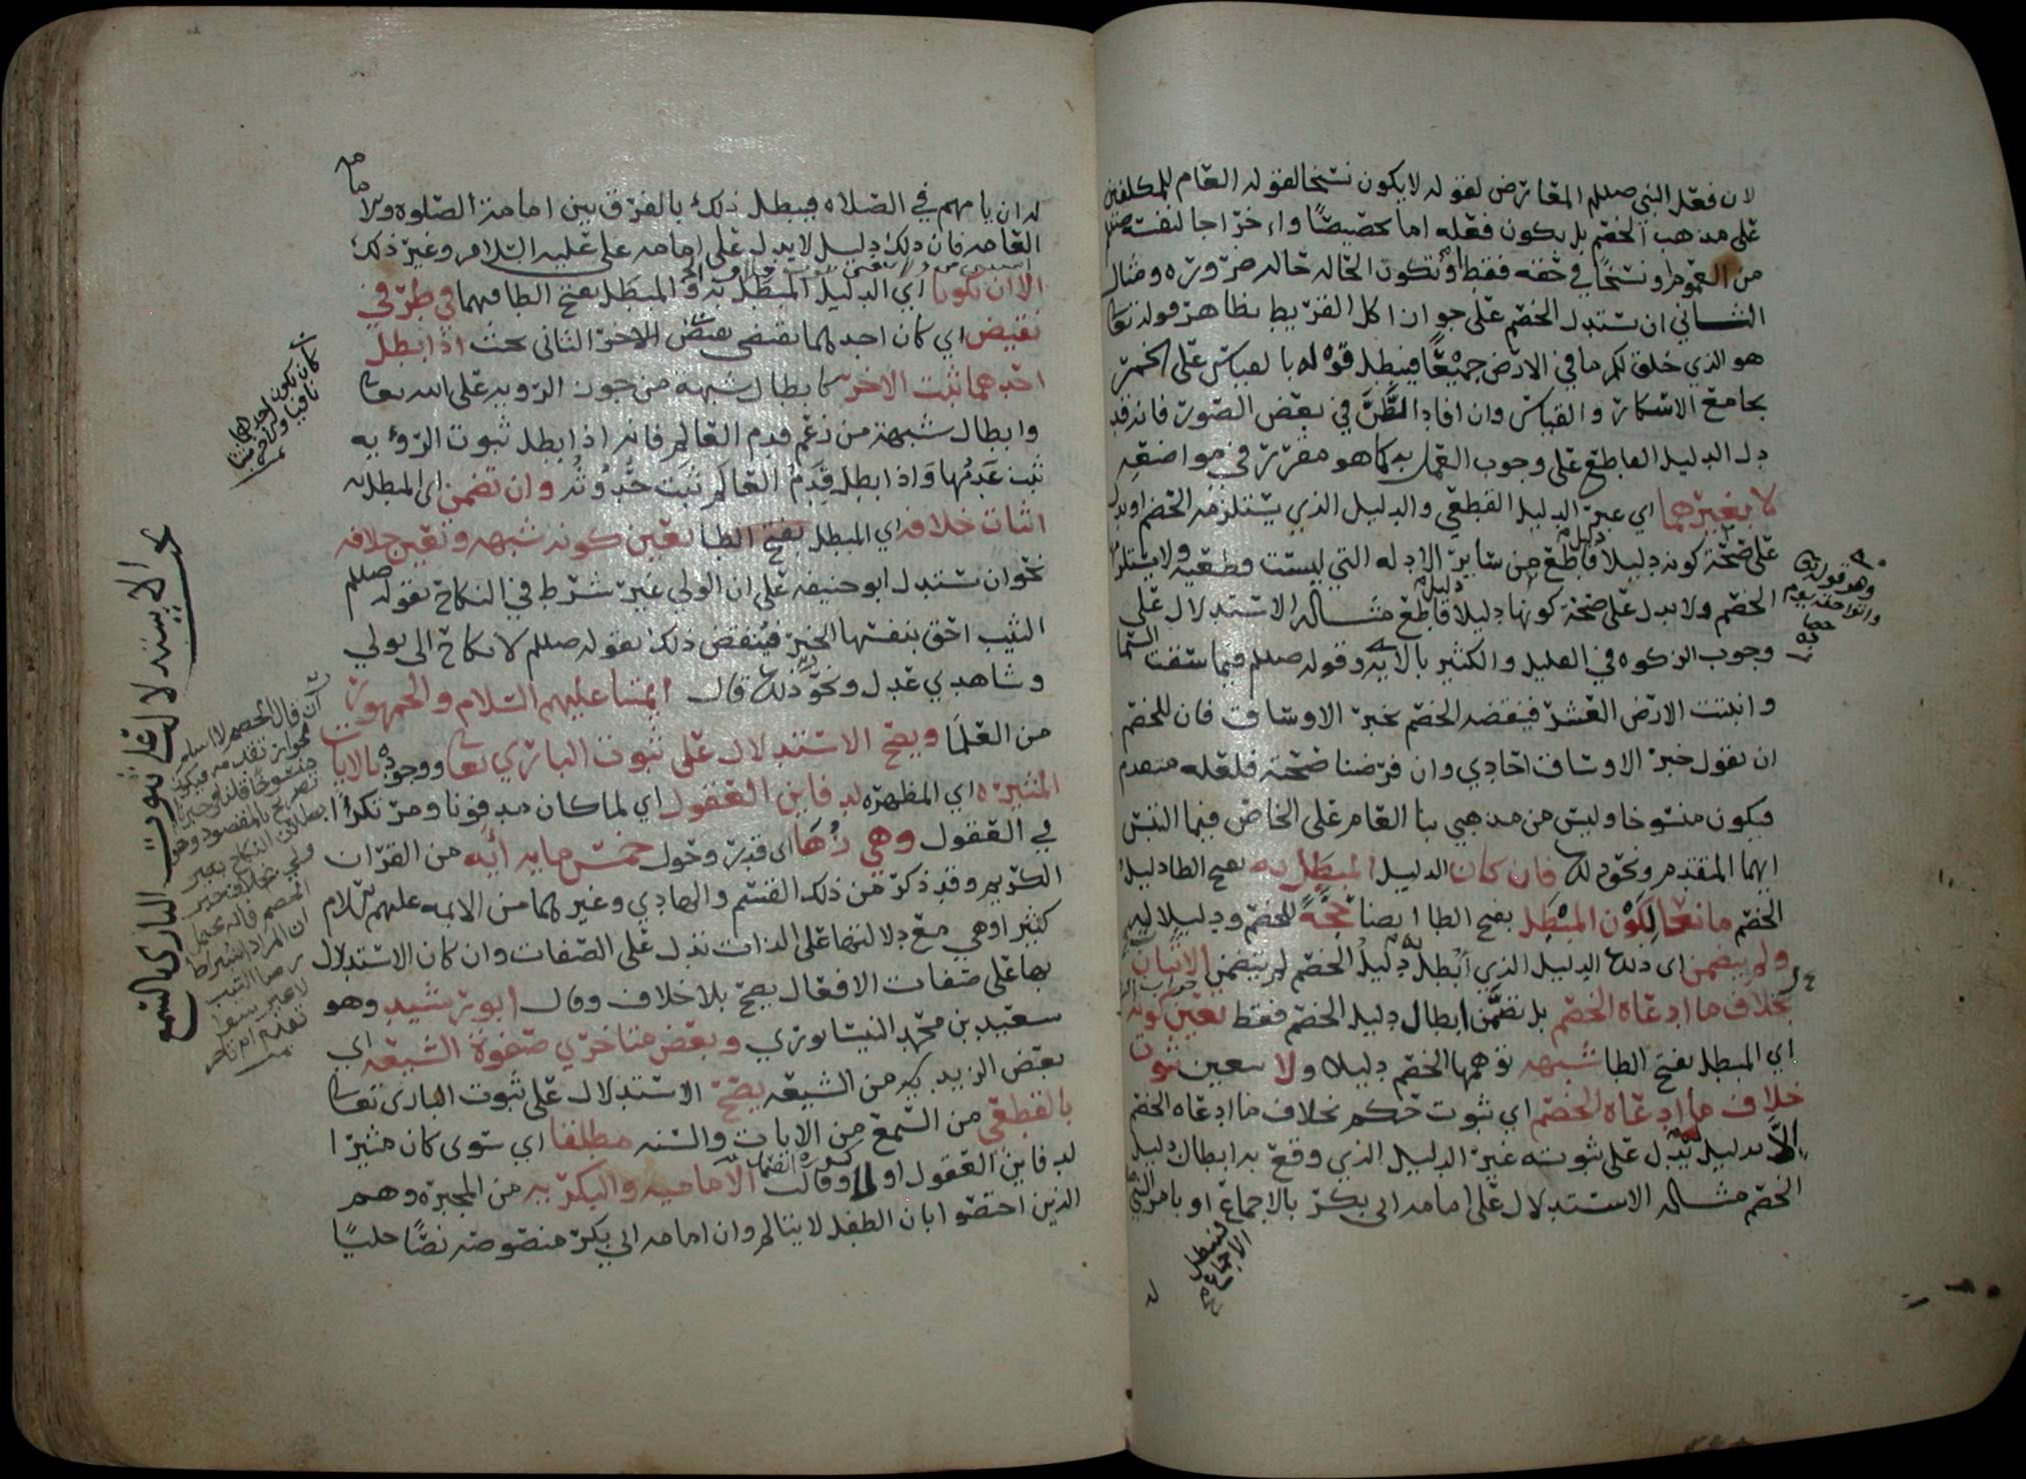 لان فعل النبي صللم المعارض لقوله لا يكون نسخا لقوله العام للمكلفين
على مذهب الخصم بل يكون فعله اما تخصيصًا واخراجا لنفسه صللم
من العموم او نسخًا في حقه فقط او تكون الحاله حاله ضروره ومثال
الثاني ان يستدل الخصم على جواز اكل القريط بظاهر قوله تعا
هو الذي خلق لكم ما في الارض جميعًا فيبطل قوله بالقياس على الخمر
بجامع الاسكار والقياس وان افاد الظن في بعض الصور فانه قد
دل الدليل القاطع على وجوب العمل به كما هو مقرر في مواضعه
لا بغيرهما اي غير الدليل القطعي والدليل الذي يستلزمه الخصم او يدل
على صحة كونه دليلا دليل قاطع من سائر الادله التي ليست قطعيه ولا يستلزمها
الخصم ولا يدل على صحة كونها دليلا دليل قاطع مثاله الاستدلال على
وجوب الزكوه في القليل والكثير بالايه وقوله صللم فيما سقت السما
وانبتت الارض العشر فينقضه الخصم بخبر الاوساق فان للخصم
ان يقول خبر الاوساق احادي وان فرضنا صحته فلعله متقدم
فيكون منسوخا وليس من مذهبي بنا العام على الخاص فيما التبس
ايهما المتقدم ونحو ذلك فان كان الدليل المبطَل به بفتح الطا دليل
الخصم مانعا لكون المبطَل بفتح الطا ايضا حجةً للخصم ودليلا له
ولم يتضمن اى ذلك الدليل الذي ابطل به دليل الخصم لم يتضمن الاتيان
بخلاف ما ادعاه الخصم بل تضمَّن ابطال دليل الخصم فقط تعين كونه
اي المبطل بفتح الطا شبهه توهمها الخصم دليلا ولا يتعين ثبوت
خلاف ما ادعاه الخصم اي ثبوت حكم بخلاف ما ادعاه الخصم
الا بدليل يدل على ثبوته غير الدليل الذي وقع به ابطال دليل
الخصم مثاله الاستدلال على امامه ابي بكر بالاجماع او بامر النبي
وهو قوله تعا
واتوا حقه يوم
حصاده
فيبطل
الاجماع
له ان يامهم في الصلاه فيبطل ذلك بالفرق بين امامة الصلوه والامامه
العامه فان ذلك دليل لا يدل على امامه علي عليه السلام وغير ذلك
الا ان يكونا اي الدليل المبطل به والمبطَل بفتح الطا فهما في طرفي
نقيض اي كان احدهما يقتضي نقيض الاخر الثاني بحيث اذا بطل
احدهما ثبت الاخر كابطال شبهة من جوز الرويه على الله تعا
وابطال شبهة من زعم قدم العالم فانه اذا بطل ثبوت الرؤيه
ثبت عدمها واذا بطل قِدَم العالم ثبت حُدُوثُه وان تضمن اي المبطل به
اثبات خلافه اي المبطل بفتح الطا تعين كونه شبهه وتعين خلافه
نحو ان يستدل ابو حنيفه على ان الولي غير شرط في النكاح بقوله صللم
الثيب احق بنفسها الخبر فينقض ذلك بقوله صللم لا نكاح الى بولي
وشاهدي عدل ونحو ذلك قال ائمتنا عليهم السلام والجمهور
من العلما ويصح الاستدلال على ثبوت الباري تعا ووجوده بالايات
المثيره اي المظهره لدفاين العقول اي لما كان مدفونا ومرتكزًا
في العقول وهي زُها اى قدر وحول خمس مايه ايه من القرآن
الكريم وقد ذكر من ذلك القسم والهادي وغيرهما من الايمه عليهم السلام
كثيرا وهي مع دلالتها على الذات تدل على الصفات وان كان الاستدلال
بها على صفات الافعال يصح بلا خلاف وقال ابو رشيد وهو
سعيد بن محمد النيسابوري وبعض متاخري صفوة الشيعه اي
بعض الزيديه من الشيعه يصح الاستدلال على ثبوت البارى تعا
بالقطعي من السمع من الايات والسنه مطلقا اي سوى كان مثيرا
لدفاين العقول او لا وقالت الاماميه والبكريه من المجبره وهم
الذين اختصوا بان الطفل لا يتالم وان امامه ابي بكر منصوصه نصًا جليًا
كان يكون احدهما
نافيا والاخر مثبتا
الاستدلال على ثبوت البارى بالسمع
ان قال الخصم لا اسلم
لجواز تقدمه فيكون
منسوخا قلنا
تصريح بالمقصود وهو
بطلان النكاح بغير
ولي بخلاف خبر
الخصم فانه يحتمل
ان المراد اشتراط
رضا الثيب